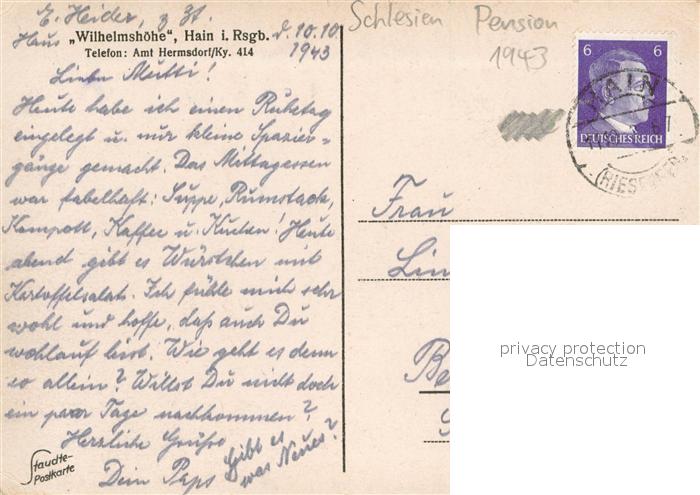 E. Heider, z. Zt.
Haus „Wilhelmshöhe", Hain i. Rsgb. d. 10.10
Telefon: Amt Hermsdorf/Ky. 414 1943
Liebe Mutti!
Heute habe ich einen Ruhetag
eingelegt u. nur kleine Spazier-
gänge gemacht. Das Mittagessen
war fabelhaft: Suppe, Rumstack,
Kompott, Kaffee u. Kuchen! Heute
abend gibt es Würstchen mit
Kartoffelsalat. Ich fühle mich sehr
wohl und hoffe, daß auch Du
wohlauf bist. Wie geht es denn
so allein? Willst Du nicht doch
ein paar Tage nachkommen?
Herzliche Grüße
Dein Paps
Gibt es
was Neues?
Staudte-
Postkarte
Schlesien Pension
1943
6 6
DEUTSCHES REICH
HAIN
Frau
Lin
privacy protection
Datenschutz